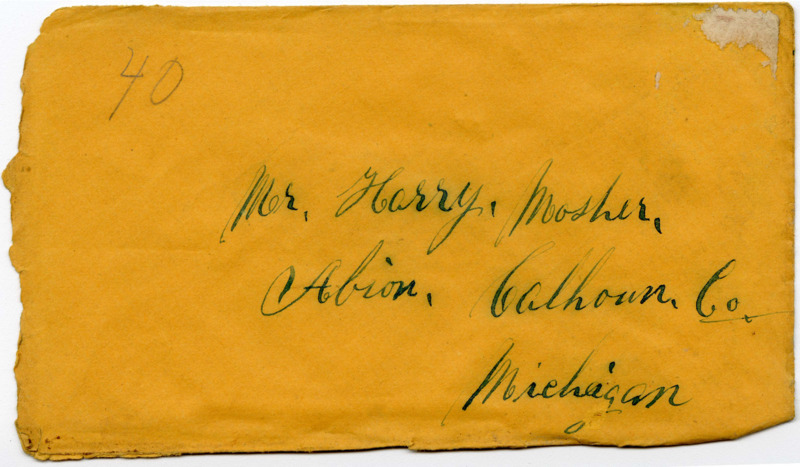 40
Mr. Harry. Mosher.
Albion. Calhoun. Co.
Michigan